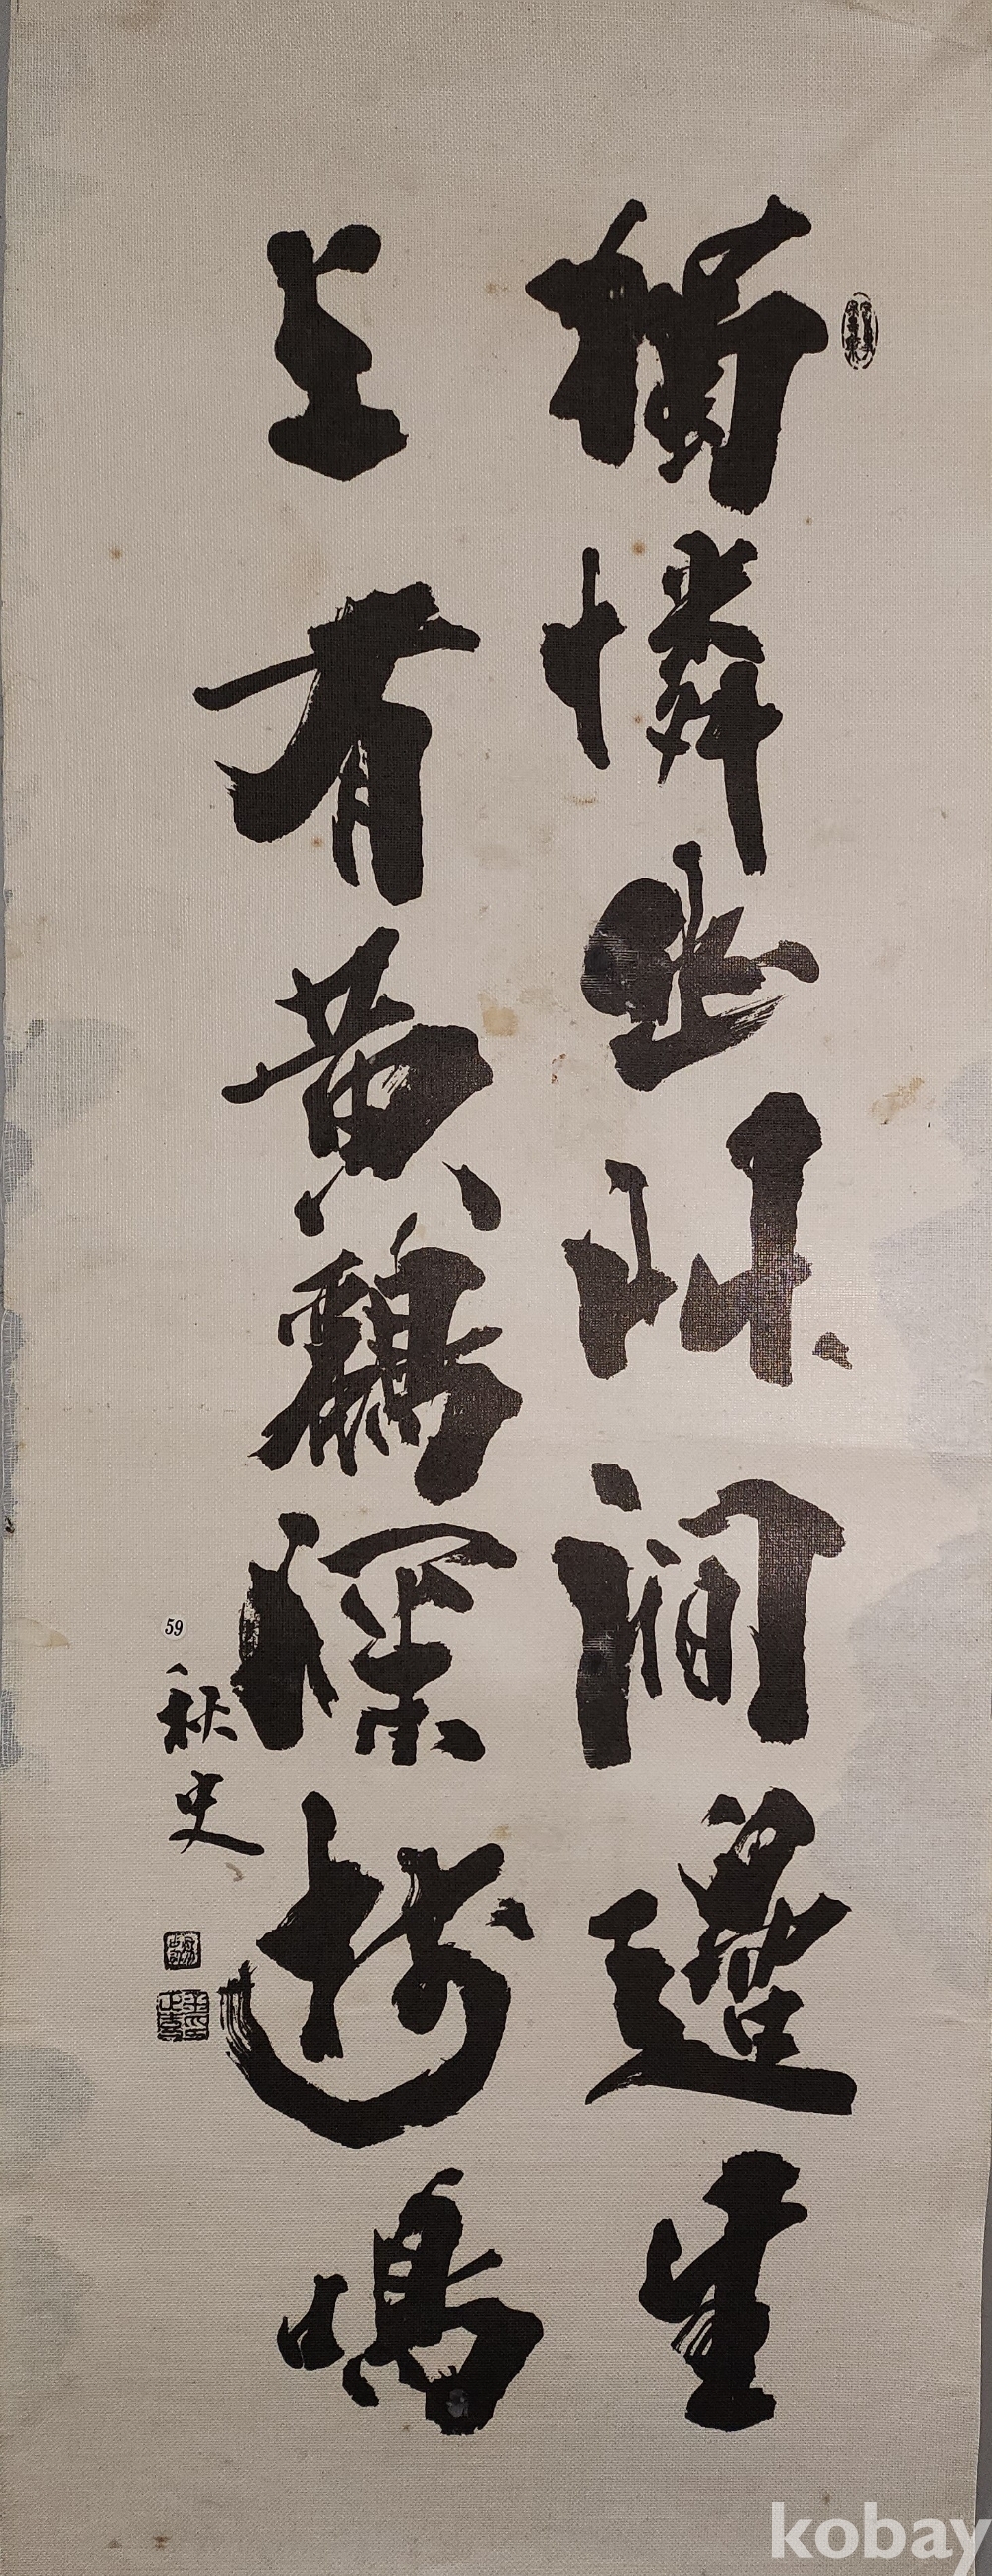 獨憐幽草澗邊生
上有黃鸝深樹鳴
秋史
59
kobay